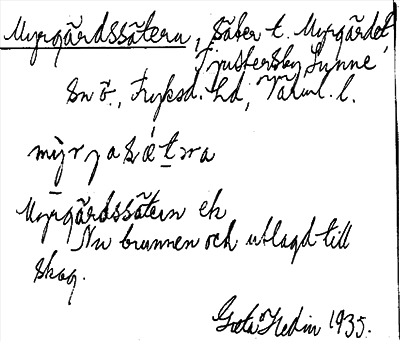 Myrgärdssätern, säter t. Myrgärdet,
Ljustersby, Sunne
sn ö., Fryksd. hd, Värml. l.
mỳrɡasǽtra
Myrgärdssätern ek
Nu brunnen och utlagd till
skog.
Greta Hedin 1935.